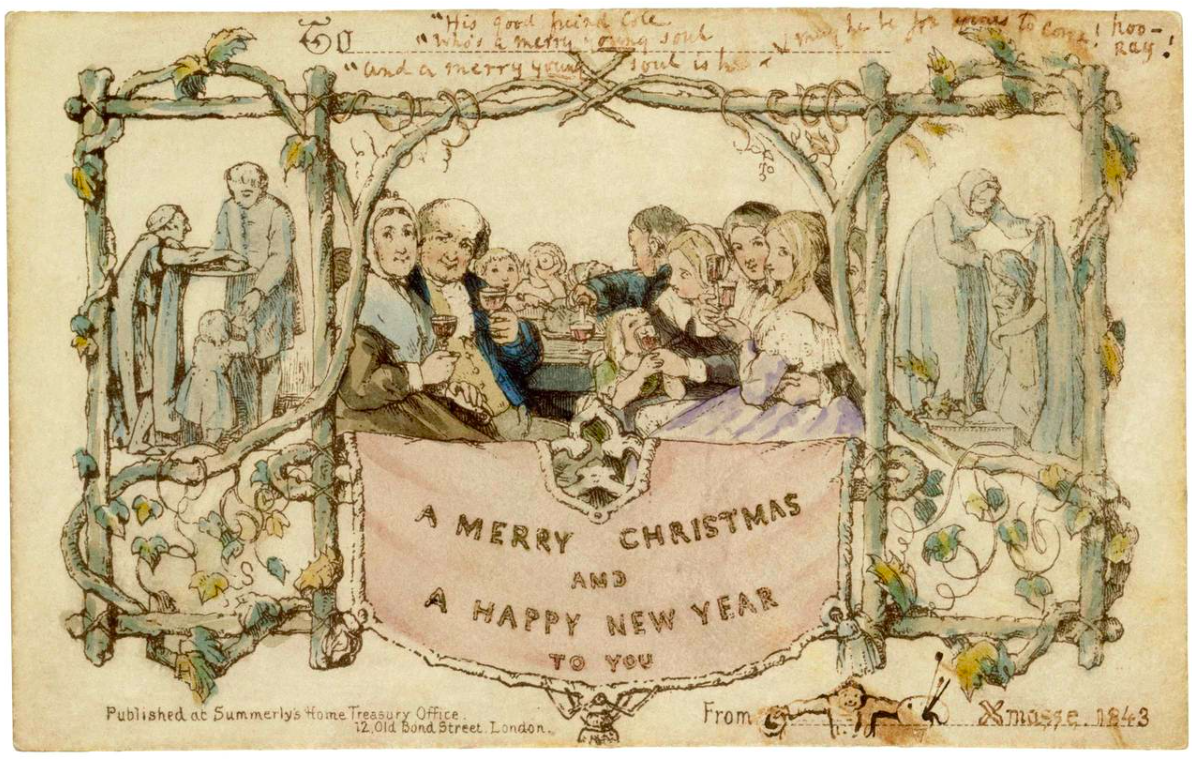 "His good friend Cole
To
"Who's a merry young soul
"and a merry young soul is he
may he be for years to come! hoo-
Ray!
A MERRY CHRISTMAS
AND
A HAPPY NEW YEAR
TO YOU
Published at Summerly's Home Treasury Office.
12, Old Bond Street. London.
From
Xmasse, 1843